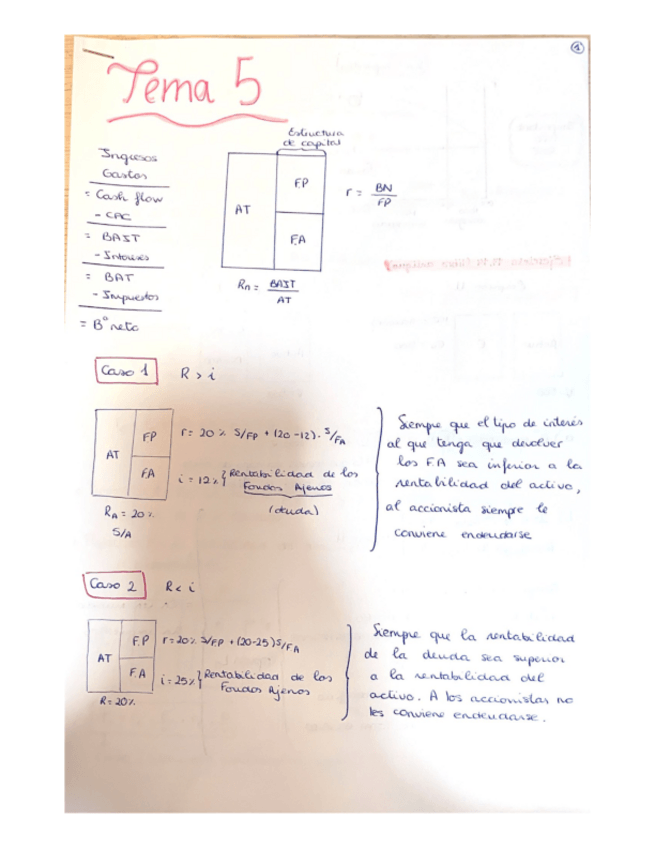 1
Tema 5
Ingresos
Gastos
= Cash flow
- CAC
= BAIT
- Intereses
= BAT
- Impuestos
= Bº neto
Estructura
de capital
AT
F.P
F.A
r = BN
FP
Rn = BAIT
AT
Caso 1
R > i
AT
FP
FA
r = 20 % S/FP + (20-12). S/FA
i = 12% } Rentabilidad de los
Fondos Ajenos
(deuda)
RA = 20 %
S/A
Siempre que el tipo de interés
al que tenga que devolver
los F.A sea inferior a la
rentabilidad del activo,
al accionista siempre le
conviene endeudarse
Caso 2
R < i
AT
F.P
F.A
r = 20% S/F.P + (20-25) S/F.A
i = 25% } Rentabilidad de los
Fondos Ajenos
R = 20%
Siempre que la rentabilidad
de la deuda sea superior
a la rentabilidad del
activo. A los accionistas no
les conviene endeudarse.